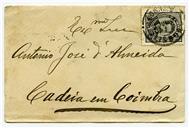 Ex.mo Snr
Antonio José d'Almeida
Cadeia em Coimbra